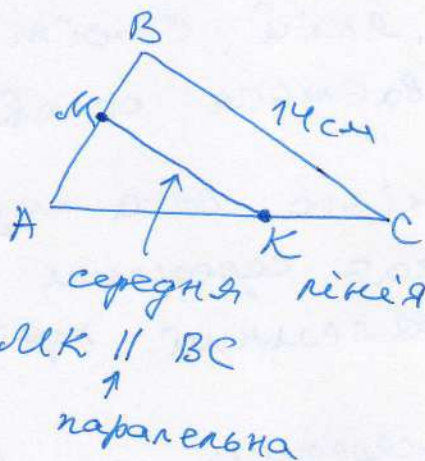 B
M
14см
A
K
C
середня лінія
MK || BC
паралельна